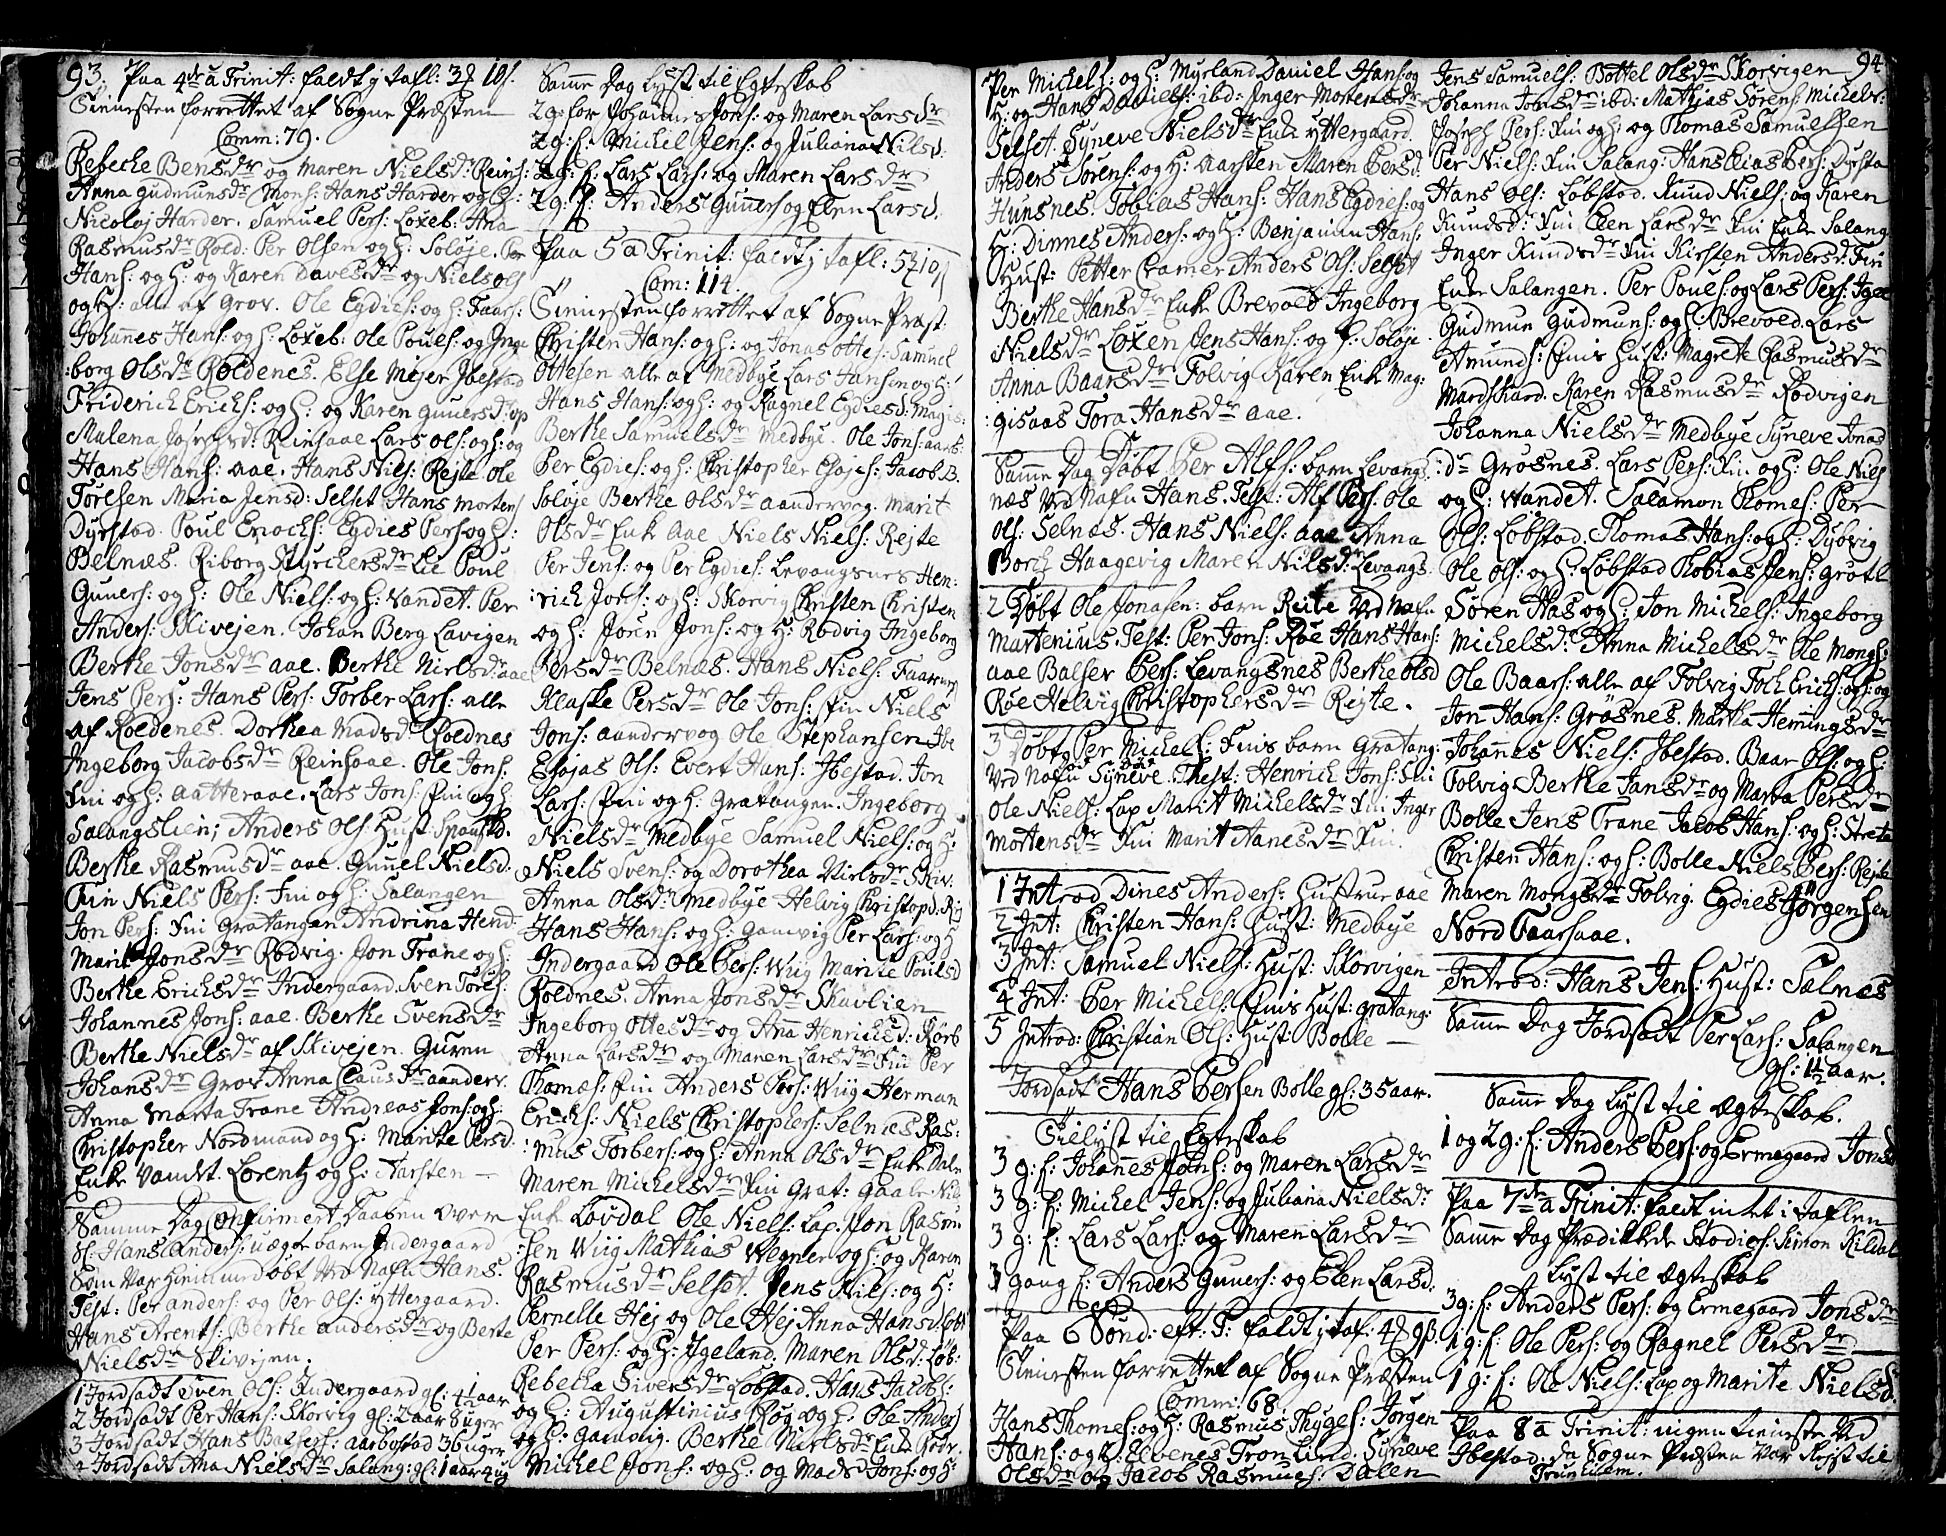 93. Paa 4de a Trinit: faldt j tafl: 3 10
Tienesten forrettet af Sogne Præsten
Comm: 79.
Rebecke Bensdr og Maren Nielsdr Reins:
Anna Gudmunsdr Mons: Hans Harder og H:
Nicolaj Harder. Samuel Pers: Loxeb: Ana
Rasmusdr Rold: Per Olsen og H: Soløje. Per
Hans: og H: og Karen Davesdr og Niels Ols
og H: alle af Grov. Ole Egdies: og H: Faars:
Johannes Hans: og H: Loxeb: Ole Pouels: og Inge
:borg Olsdr Roldenes. Else Mejer Ibestad
Friderich Erichs: og H: og Karen Gunersd: op
Malena Josepsd: Reinsaae Lars Ols: og H: og
Hans Hans: aae. Hans Niels: Rejte Ole
Toresen Maria Jensd: Selset Hans Mortens
Dyrstad. Poul Enochs: Egdies Pers: og H:
Belnæs. Riborg Styrchersdr Lie Poul
Guners: og H: Ole Niels: og H: Vandet. Per
Anders: Skivejen. Johan Berg Lavigen
Berthe Jonsdr aae. Berthe Nielsdr aae
Jens Pers: Hans Pers: Torber Lars: alle
af Roedenes. Dorthea Madsd: Roednes
Ingeborg Jacobsdr Reinsaae. Ole Jons:
Fin og H: aatteraae. Lars Jons: Fin og H:
Salangslien; Anders Ols: Hust:
Berthe Rasmusdr aae. Gunnel Nielsd:
Fin Niels Pers: Fin og H: Salangen
Jon Pers: Fin Gratangen Andrina Hend:
Marit Jonsdr Rodvig. Jon Trane og H:
Berthe Erichsdr Indergaard. Sven Tores:
Johannes Jons: aae. Berthe Svensdr
Berthe Nielsdr af Skivejen. Guren
Johansdr Grov Anna Clausdr aanderv.
Anna Marta Trane Andreas Jons: og H:
Christopher Nordmand og H: Marite Persd:
Enke Vandt. Lorentz og H: Aarsten —
Samme Dag Confirmert Daaben over
Hans Anders: uægte barn Indergaard
Som var hiemmedøbt Ved Nafn Hans.
Test: Per Anders: og Per Ols: Yttergaard.
Hans Arents: Berthe Andersdr og Berte
Nielsdr Skivejen.
1 Jordsadt Sven Ols: Indergaard gl: 4½ aar
2 Jordsadt Per Hans: Skorvig gl: 2 aar 8 uger
3 Jordsadt Hans Balsers: aarbostad 36 uger
4 Jordsadt Ana Nielsdr Salang: gl: 1 aar 4 ug
Samme Dag Lyst til Egteskab
2 g: for Johannes Jons: og Maren Larsdr
2 g: f: Michel Jens: og Juliana Nilsd:
2 g: f: Lars Lars: og Maren Larsdr
2 g: f: Anders Guners og Elen Larsd.
Paa 5 a Trinit: faldt j tafl: 5 10
Com: 114.
Tienesten forrettet af Sogne Præst:
Christen Hans: og H: og Jonas Ottes: Samuel
Ottesen alle af Medbye Lars Hansen og H:
Hans Hans: og H: og Ragnel Egdiesd: Magis:
Berthe Samuelsdr Medbye. Ole Jons: aars:
Per Egdies: og H: Christopher Esajes: Jacob B.
Soløje Berthe Olsdr aandervog. Marit
Olsdr Enk aae Niels Niels: Rejte
Per Jens: og Per Egdies: Levangsnes Hen:
:rich Jons: og H: Skorvig Christen Christen
og H: Joen Jons: og H: Rodvig Ingeborg
Persdr Belnæs. Hans Niels: Faarnes
Klaske Persdr Ole Jons: Fin Niels
Jons: aandervog Ole Stephansen Ibe
Esajas Ols: Evert Hans: Ibestad. Jon
Lars: Fin og H: Gratangen. Ingeborg
Nielsdr Medbye Samuel Niels: og H:
Niels Svens: og Dorothea Nielsdr Skiv.
Anna Olsdr Medbye Helvig Christopd: Rej
Hans Hans: og H: Gamvig Per Lars: og H
Indergaard Ole Pers: Wiig Marite Poulsd
Roldnes. Anna Jonsdr Skavlien
Ingeborg Ottesdr og Ana Henrichsd: Rørb
Anna Larsdr og Maren Larsdr Fin Per
Thomæs: Fin Anders Pers: Wiig Herman
Erichs: Niels Christophers: Selnes Ras:
:mus Torbers: og H: Anna Olsdr Enke Dale
Maren Michelsdr Fin Grat: Gaale Nils
Enk Lovdal Ole Niels: Lap. Jon Rasmu
:sen Wiig Mathias Wegner og H: og Karen
Rasmusdr Selset. Jens Niels: og H:
Pernelle Hej og Ole Hej Anna Hansd: Lobst
Per Pers: og H: Igeland. Maren Olsd: Løb:
Rebecka Siversdr Løbstad. Hans Jacobs:
og H: Augustinius Høg og H: Ole Anders
og H: Gamvig. Berthe Nielsdr Enk Rødv.
Michel Jons: og H: og Mads Jons: og H:
Per Michels: og H: Myrland Daniel Hans: og
H: og Hans Daniels: ibd: Inger Mortensdr
Selset. Syneve Nielsdr Enk Yttergaard.
Anders Sorens: og H: Aarsten Maren Persd.
Hunsnes. Tobias Hans: Hans Egdies: og
H: Dinnes Anders: og H: Benjamin Hans.
Hust: Petter Cramer Anders Ols: Selset
Berthe Hansdr Enke Brevoed Ingeborg
Nielsdr Loxen Jens Hans: og H: Soløje.
Anna Baarsdr Tolvig Karen Enk Mag:
:gisaas Tora Hansdr aae.
Samme Dag Døbt Per Alfs: barn Levangs:
næs Ved Nafn Hans. Test: Alf Pers: Ole
Ols: Selnæs. Hans Niels: aae Anna
Borch Haagevig Maren Nilsd: Levangs.
2 Døbt Ole Jonasen: barn Reite Ved Nafn
Martenius. Test: Per Jons: Røe Hans Hans:
aae Balser Pers: Levangsnes Berthe Olsd
Røe Helvig Christophersdr Rejte.
3 Døbt Per Michels: Fins barn Gratang:
Ved Nafn Syneve. Thest: Henrich Jons: Fin
Ole Niels: Lap Marit Michelsdr Fin Inger
Mortensdr Fin Marit Hanesdr Fin.
1 Introd Dines Anders: Hustrue aae
2 Int: Christen Hans: Hust: Medbye
3 Int: Samuel Niels: Hust: Skorvigen
4 Int: Per Michels: Fins Hust: Gratang:
5 Introd: Christian Ols: Hust Bolle —
Jordsadt Hans Persen Bolle gl: 35 aar.
Tillyst til Egteskab
3 g: f: Johannes Jons: og Maren Larsdr
3 g: f: Michel Jens: og Juliana Nielsdr
3 g: f: Lars Lars: og Maren Larsdr
3 gang f: Anders Guners: og Elen Larsd.
Paa 6 Sønd: eft: T: faldt j taf: 4 9
Tienesten forrettet af Sogne Præsten
Comm: 68
Hans Thomes: og H: Rasmus Thyges: Jørgen
Hans: og H: Elvenes Tron Lind: Syneve
Olsdr og Jacob Rasmus: Dalen
Jens Samuels: Bottel Olsdr Skorvigen 94
Johanna Jonsdr ibd: Mathias Sørens: Michels:
Joseph Pers: Fin og H: og Thomas Samuelsen
Per Niels: Fin Salang: Hans Elias Pers: Dyrsta
Hans Ols: Løbstad. Knud Niels: og Karen
Knudsdr Fin Elen Larsdr Fin Enke Salang
Inger Knudsdr Fin Kirsten Andersd: Fin
Enke Salangen. Per Pouels: og Lars Pers: Igel
Gudmun Gudmuns: og H: Brevoed. Lars
Amunds: Fins Hust: Magrete Rasmusdr
Mardskard. Karen Rasmusdr Rodvigen
Johanna Nielsdr Medbye Syneve Jonas
:dr Grosnes. Lars Pers: Fin og H: Ole Niels
og H: Wandet. Salamon Thomes: Per
Ols: Løbstad. Thomas Hans: og H: Dyovig
Ole Ols: og H: Løbstad Thobias Jens: Gratl
Søren Has og H: Jon Michels: Ingeborg
Michelsdr Anna Michelsdr Ole Mongs:
Ole Baars: alle af Tolvig Toch Erichs: og H: og
Jon Hans: Grosnes. Martha Hemingsdr
Johanes Niels: Ibestad. Baar Ols: og H:
Tolvig Berthe Jansdr og Marta Persdr
Bolle Jens Trane Jacob Hans: og H: Strete
Christen Hans: og H: Bolle Niels Pers: Rejte
Maren Mongsdr Tolvig. Egdies Jørgensen
Nord Faarsaae.
Introd: Hans Jens: Hust: Sælnæs
Samme Dag Jordsadt Per Lars: Salangen
gl: 1½ aar.
Samme Dag Lyst til Ægteskab.
1 og 2 g: f: Anders Pers: og Ermegaard Jonsd
Paa 7de a Trinit: faldt intet i Taflen
Samme Dag Prædikkede Studios: Simon Kildal
Lyst til Ægteskab
3 g: f: Anders Pers: og Ermegaard Jonsdr
1 g: f: Ole Pers: og Ragnel Persdr
1 g: f: Ole Niels: Lap og Marite Nielsd:
Paa 8 a Trinit: ingen tieneste Ved
Ibestad. da Sogne Præsten Var Rejst til
Trundhiem.